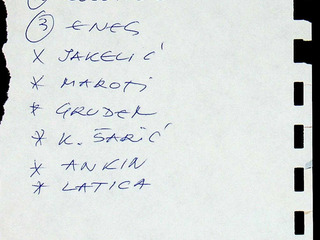 ③ ENES
× JAKELIĆ
* MAROTI
* GRUDEN
* K. ŠARIĆ
* ANKIN
* LATICA